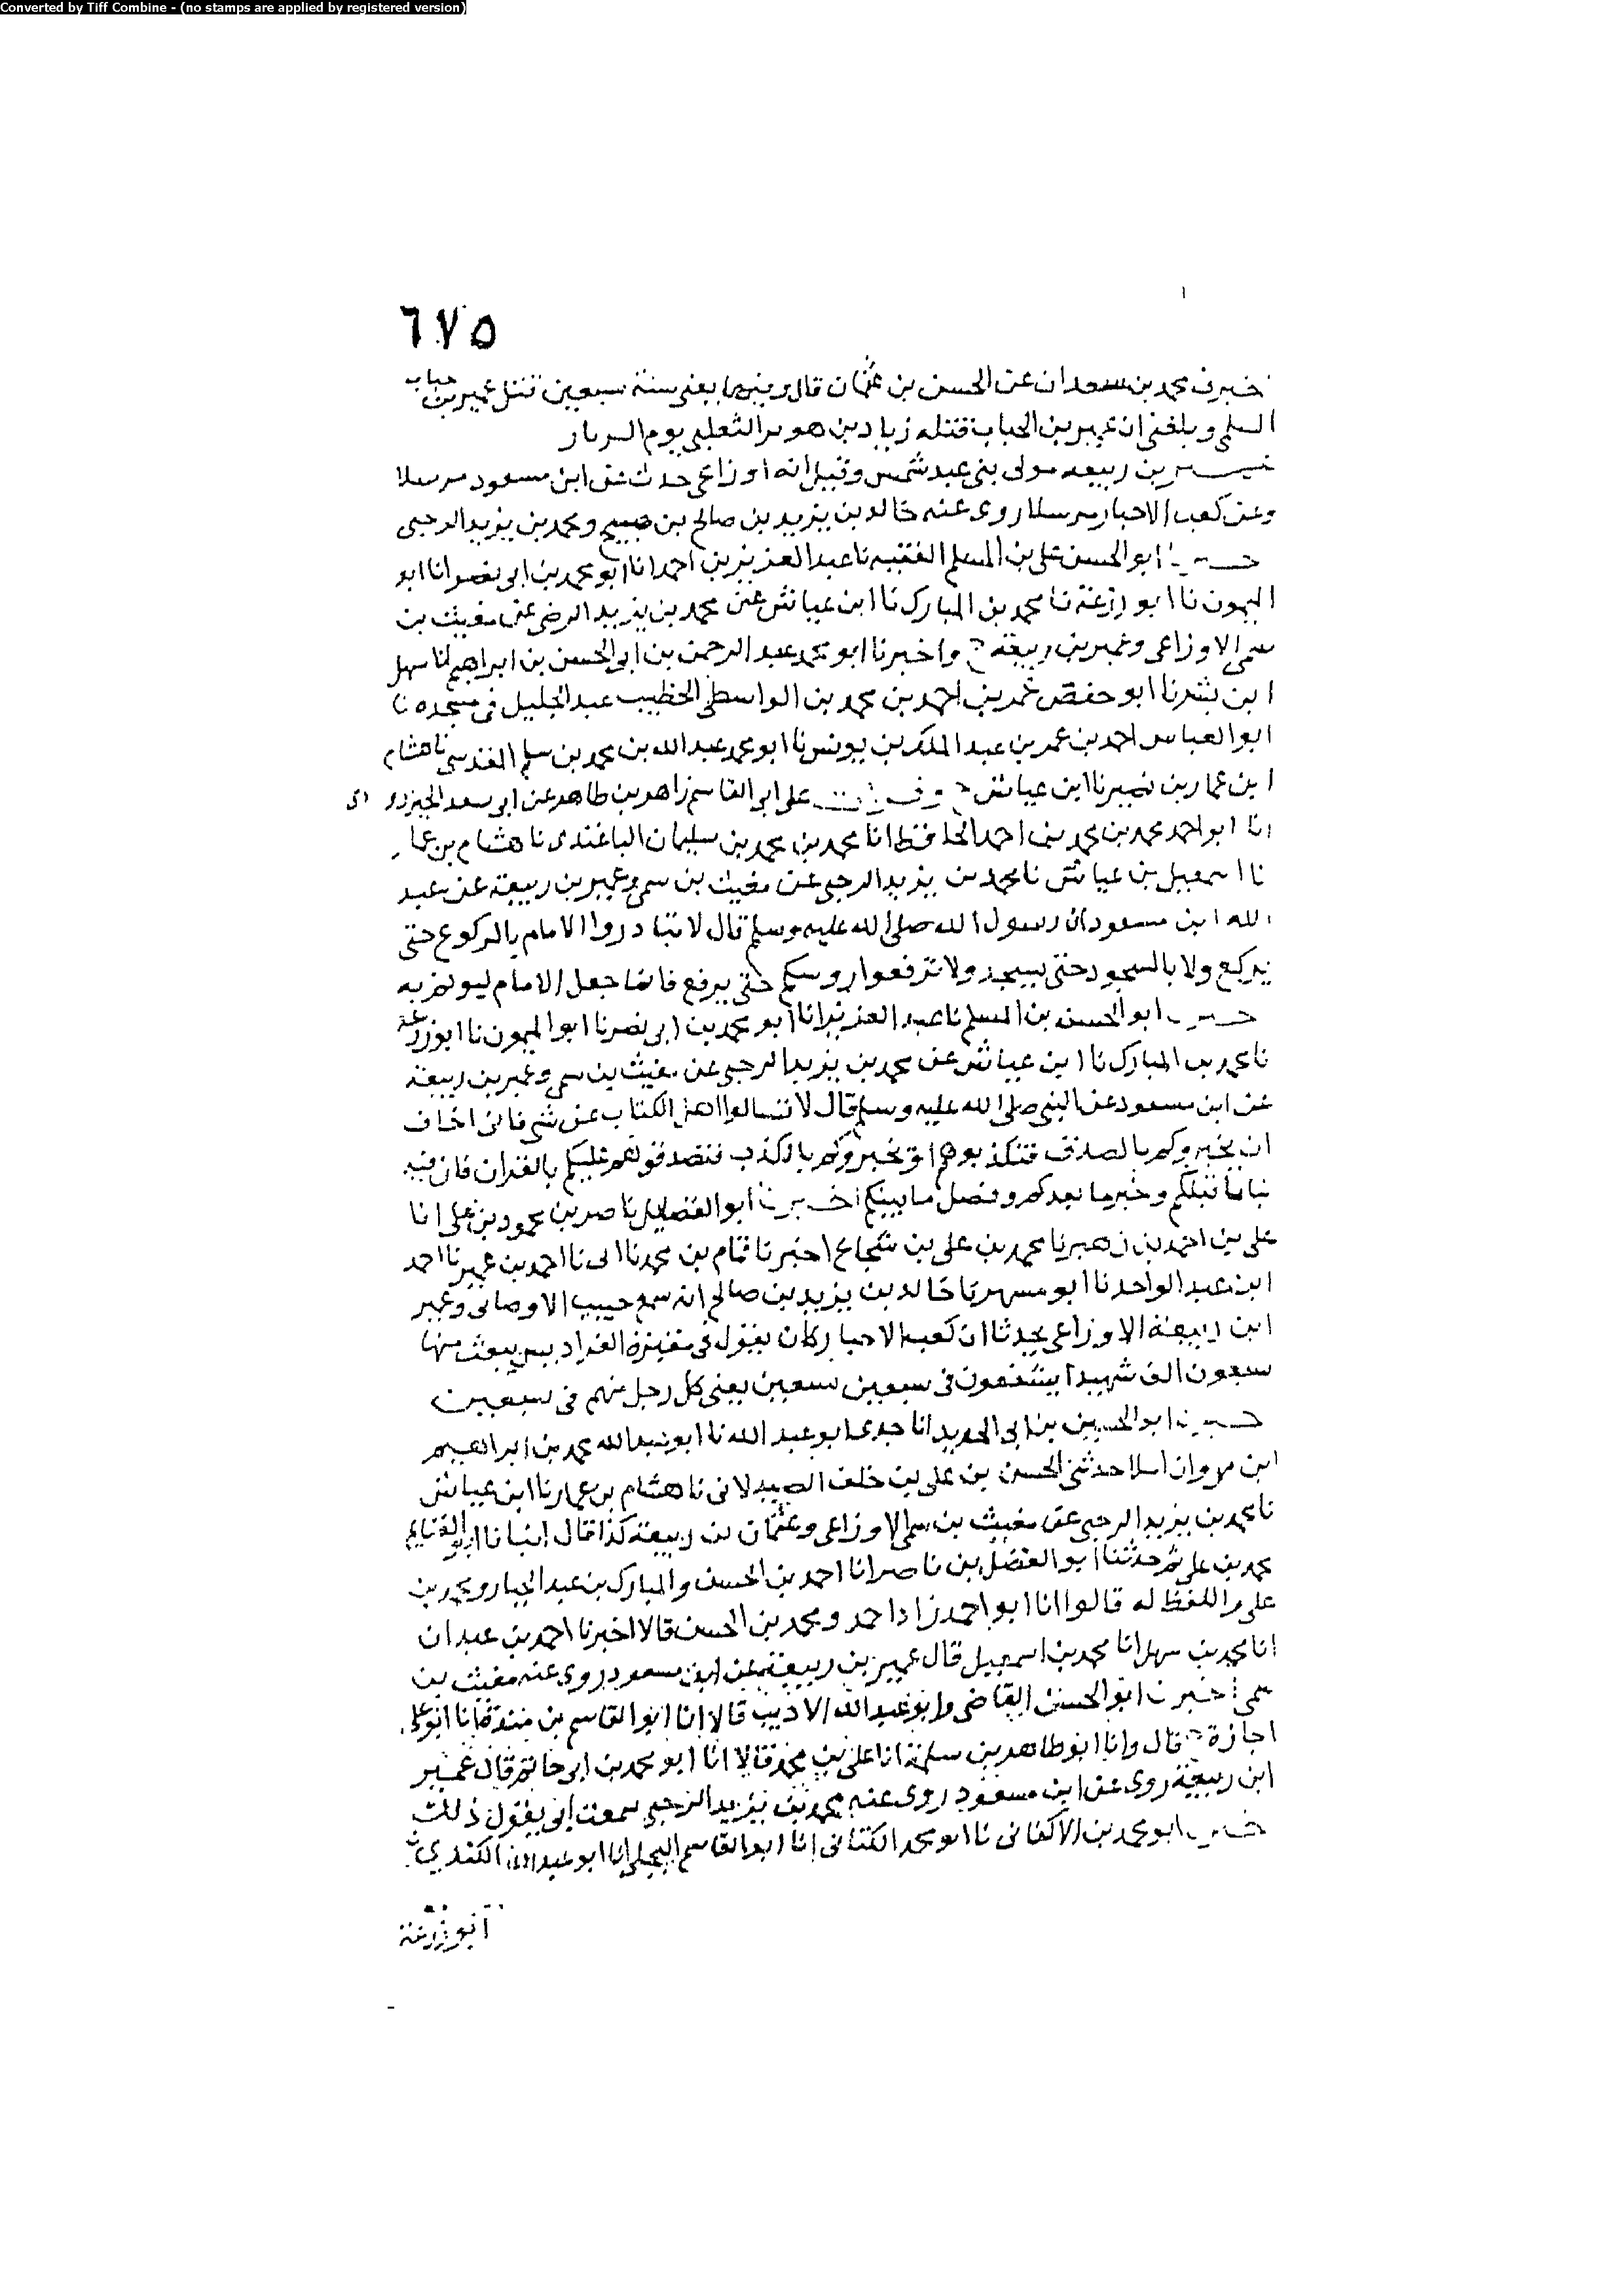 Converted by Tiff Combine - (no stamps are applied by registered version)
٦٧٥
محمد بن سعدان عن الحسن بن عثمان قال وفيها يعني سنة سبعين قتل عمير بن حباب
السلمي وبلغني ان عمير بن الحباب قتله زياد بن هوبر الثعلبي يوم
بن ربيعه مولى بني عبد شمس وقيل انه اوزاعي حدث عن ابن مسعود مرسلا
وعن كعب الاحبار مرسلا روى عنه خالد بن يزيد بن صالح بن صبيح ومحمد بن يزيد الرحبي
ابو الحسن علي بن المسلم الفقيه نا عبد العزيز بن احمد انا ابو محمد بن ابي نصر انا ابو
الميمون نا ابو زرعة نا محمد بن المبارك نا ابن عياش عن محمد بن يزيد الرحبي عن مغيث بن
سمي الاوزاعي وعمير بن ربيعة ح واخبرنا ابو محمد عبد الرحمن بن ابي الحسن بن ابراهيم انا سهل
ابن بشر نا ابو حفص عمر بن احمد بن محمد بن الواسطي الخطيب عبد الجليل في مسجده نا
ابو العباس احمد بن عمر بن عبد الملك بن يونس نا ابو محمد عبد الله بن محمد بن سلم المقدسي نا هشام
ابن عمار بن نصير نا ابن عياش ح وقرات على ابي القاسم زاهر بن طاهر عن ابي سعد الجنزرودي
انا ابو احمد محمد بن محمد بن احمد الحافظ انا محمد بن محمد بن سليمان الباغندي نا هشام بن عمار
نا اسمعيل بن عياش نا محمد بن يزيد الرحبي عن مغيث بن سمي وعمير بن ربيعة عن عبد
الله ابن مسعود ان رسول الله صلى الله عليه وسلم قال لا تبادروا الامام بالركوع حتى
يركع ولا بالسجود حتى يسجد ولا ترفعوا روسكم حتى يرفع فانما جعل الامام ليوتم به
ابو الحسن بن المسلم نا عبد العزيز انا ابو محمد بن ابي نصر نا ابو الميمون نا ابو زرعة
نا محمد بن المبارك نا ابن عياش عن محمد بن يزيد الرحبي عن مغيث بن سمي وعمير بن ربيعة
عن ابن مسعود عن النبي صلى الله عليه وسلم قال لا تسالوا اهل الكتاب عن شي فاني اخاف
ان يخبروكم بالصدق فتكذبوهم او يخبروكم بالكذب فتصدقوهم عليكم بالقران فان فيه
نبا ما قبلكم وخبر ما بعدكم وفصل ما بينكم اخبرنا ابو الفضايل ناصر بن محمود بن علي انا
علي بن احمد بن زهير نا محمد بن علي بن شجاع اخبرنا تمام بن محمد نا ابي نا احمد بن عمير نا احمد
ابن عبد الواحد نا ابو مسهر نا خالد بن يزيد بن صالح انه سمع حبيب الاوصابي وعمير
ابن ربيعة الاوزاعي يحدثا ان كعب الاحبار كان يقول في مقبرة الفراديس يبعث منها
سبعون الف شهيدا يشفعون في سبعين سبعين يعني كل رجل منهم في سبعين
ابو الحسين بن ابي الحديد انا جدي ابو عبد الله نا ابو عبد الله محمد بن ابراهيم
ابن مروان املا حدثني الحسن بن علي بن خلف الصيدلاني نا هشام بن عمار نا ابن عياش
نا محمد بن يزيد الرحبي عن مغيث بن سمي الاوزاعي وعثمان بن ربيعة كذا قال انبانا ابو الغنايم
محمد بن علي ثم حدثنا ابو الفضل بن ناصر انا احمد بن الحسن والمبارك بن عبد الجبار ومحمد بن
علي واللفظ له قالوا انا ابو احمد زاد احمد ومحمد بن الحسن قالا اخبرنا احمد بن عبدان
انا محمد بن سهل انا محمد بن اسمعيل قال عمير بن ربيعة عن ابن مسعود روى عنه مغيث بن
سمي اخبرنا ابو الحسين القاضي وابو عبد الله الاديب قالا انا ابو القاسم بن مندة انا ابو علي
اجازة ح قال وانا ابو طاهر بن سلمة انا علي بن محمد قالا انا ابو محمد بن ابي حاتم قال عمير
ابن ربيعة روى عن ابن مسعود روى عنه محمد بن يزيد الرحبي سمعت ابي يقول ذلك
ابو محمد بن الاكفاني نا ابو محمد الكتاني انا ابو القاسم البجلي انا ابو عبد الله الكندي نا
ابو زرعة